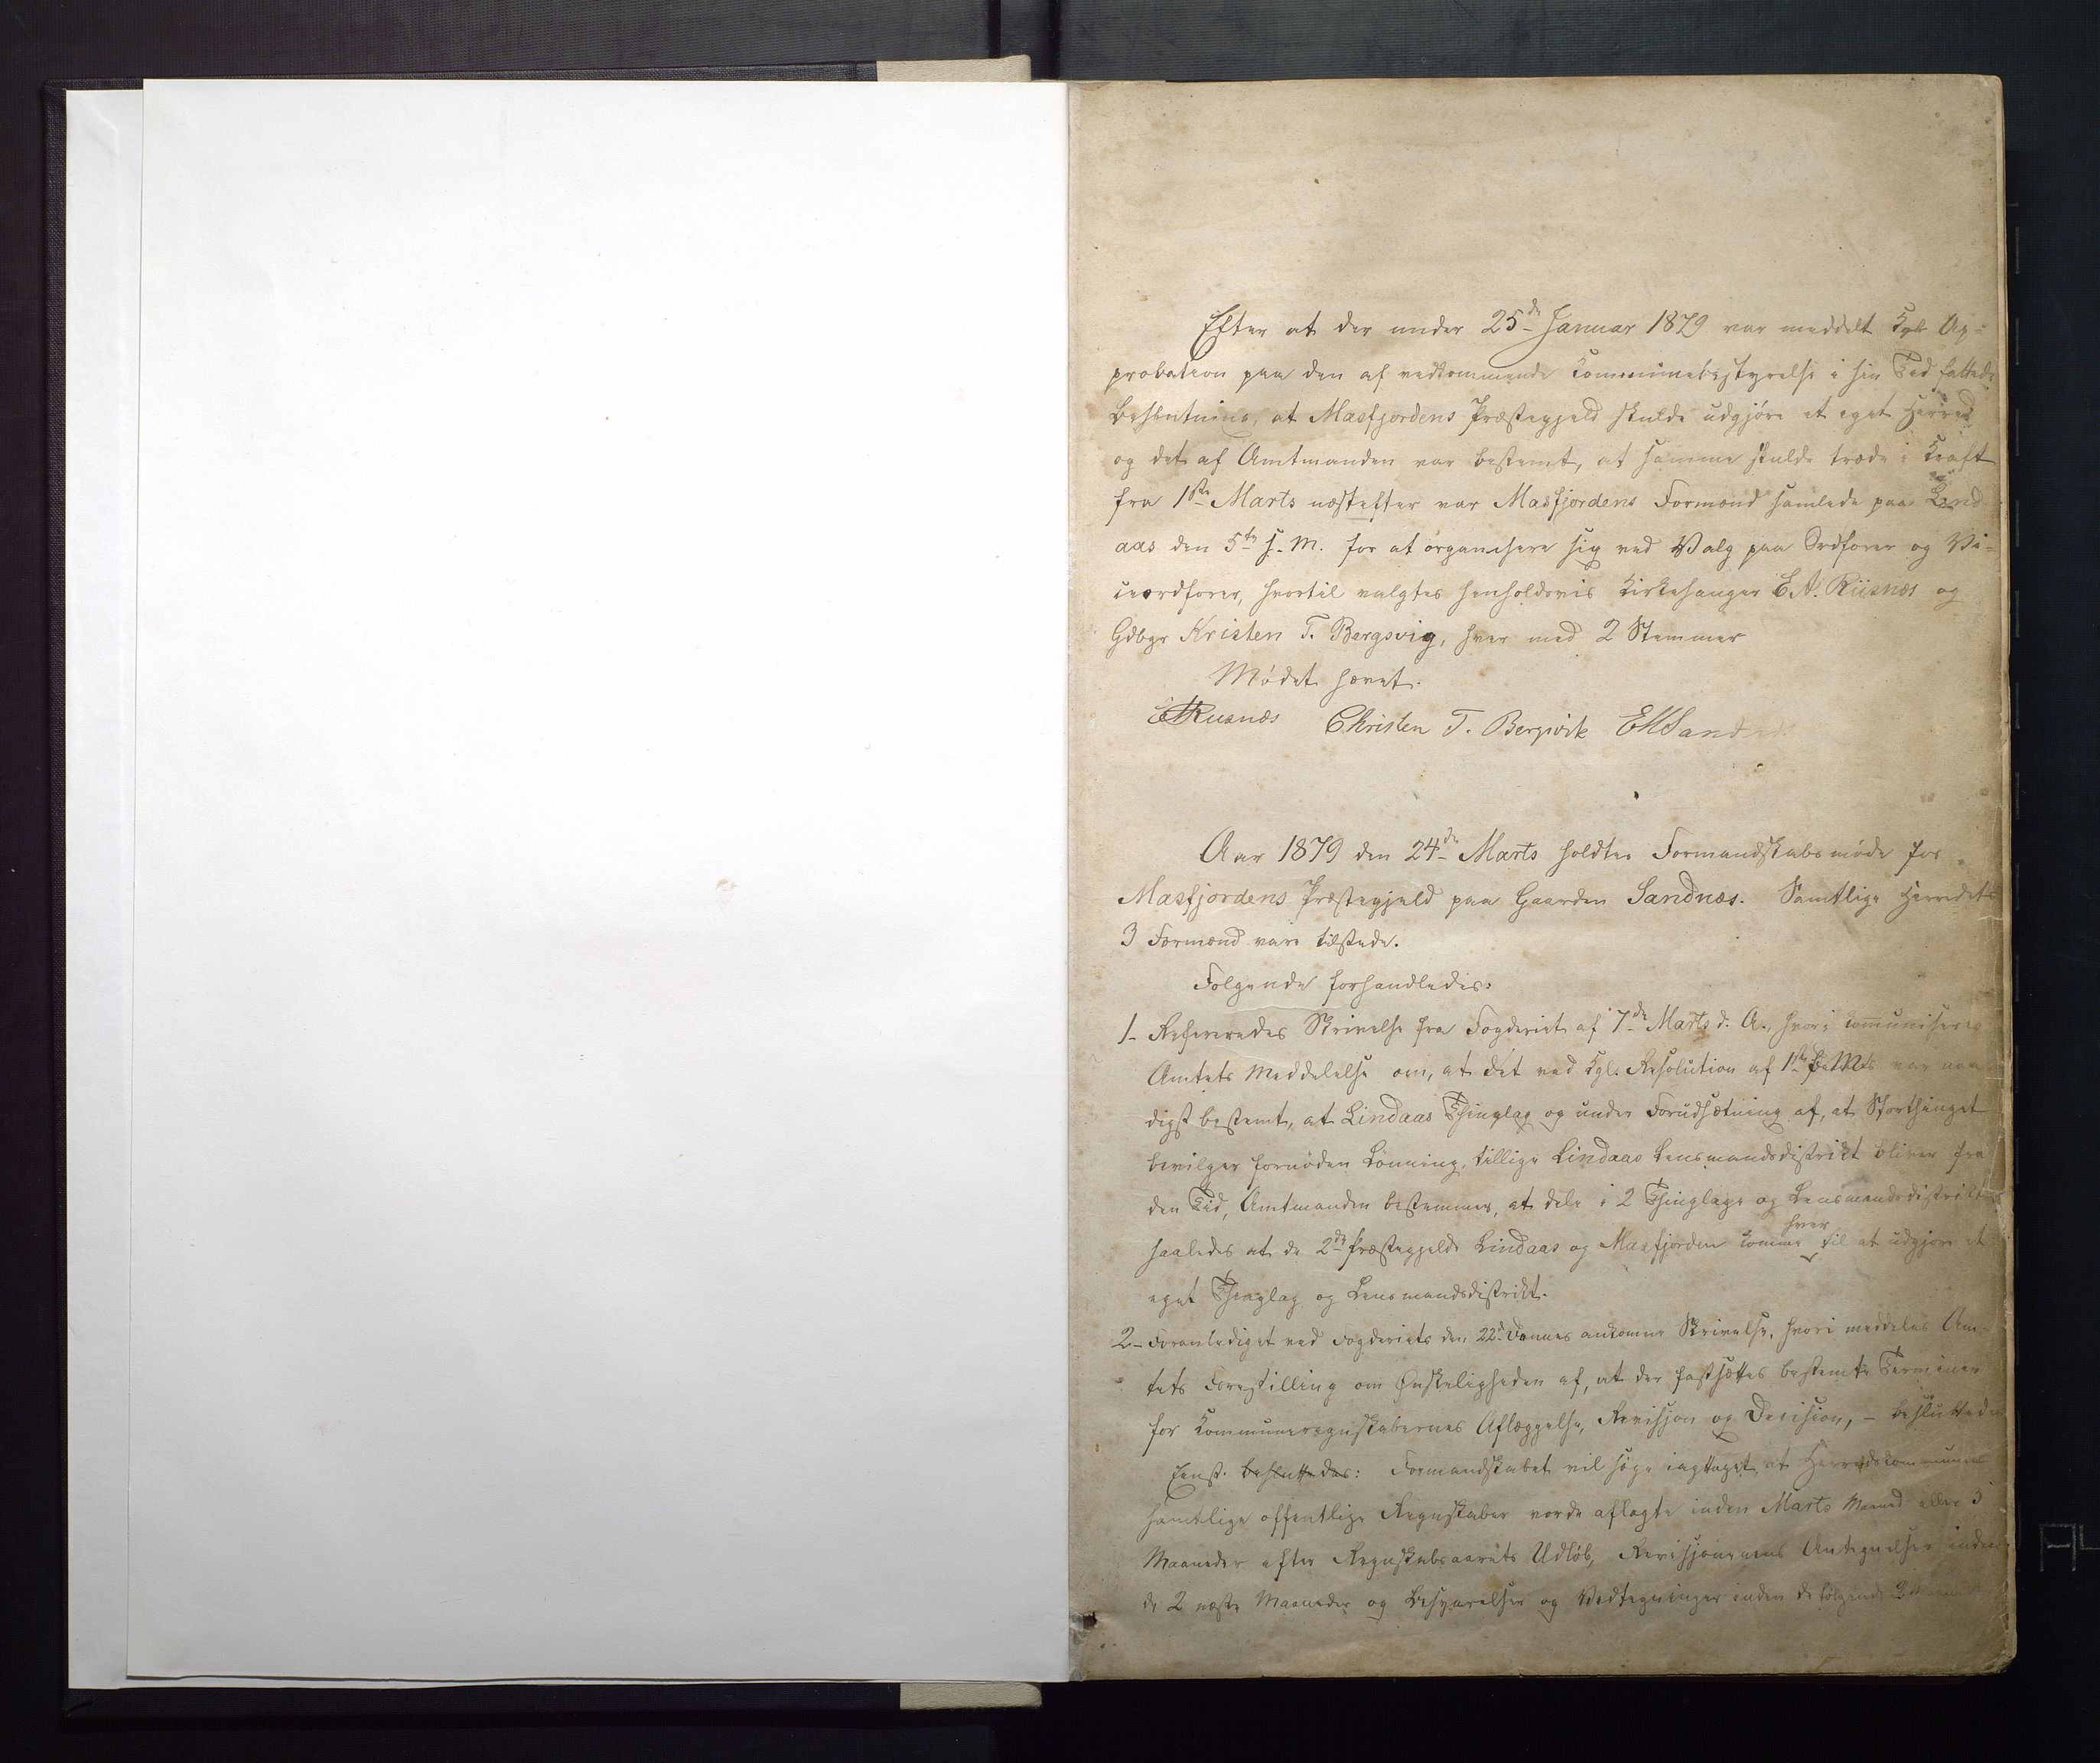 Efter at der under 25de Januar 1879 var meddelt Kgl. Ap-
probation paa den af vedkommende Communebestyrelse i sin Tid fattede
Beslutning, at Masfjordens Præstegjeld skulde udgjøre et eget Herred
og det af Amtmanden var bestemt, at samme skulde træde i Kraft
fra 1ste Marts næstefter var Masfjordens Formænd samlede paa Lind
aas den 5te s. M. for at organisere sig ved Valg paa Ordfører og Vi-
ceordfører, hvortil valgtes henholdsvis Kirkesanger E A. Riisnæs og
Gdbgr Kristen T. Bergsvig, hver med 2 Stemmer
Mødet hævet.
EARiisnæs Christen T. Bergsvik
Aar 1879 den 24de Marts holdtes Formandskabsmøde for
Masfjordens Præstegjeld paa Gaarden Sandnæs. Samtlige Herredets
3 Formænd vare tilstede.
Følgende forhandledes:
1- Refereredes Skrivelse fra Fogderiet af 7de Marts d. A., hvori communiseres
Amtets Meddelelse om, at det ved Kgl. Resolution af 1ste var naa
digst bestemt, at Lindaas Thinglag og under Forudsætning af, at Storthinget
bevilger fornøden Lønning, tillige Lindaas Lensmandsdistrikt bliver fra
den Tid, Amtmanden bestemmer, at dele i 2 Thinglage og Lensmandsdistrikter
saaledes at de 2de Præstegjelde Lindaas og Masfjorden komme hver til at udgjøre et
eget Thinglag og Lensmandsdistrikt.
2- Foranlediget ved Fogderiets den 22de Dennes ankomne Skrivelse, hvori meddeles Am-
tets Forestilling om Ønskeligheden af, at der fastsættes bestemte Terminer
for Kommuneregnskabernes Aflæggelse, Revisjon og Decision, - besluttedes
Eenst. besluttedes: Formandskabet vil søge iagttaget, at Herredskommunens
samtlige offentlige Regnskaber vorde aflagte inden Marts Maaned eller 3
Maaneder efter Regnskabsaarets Udløb, Revisjonens Antegnelser inden
de 2 næste Maaneder og Besvarelser og Vedtegninger inden de følgende